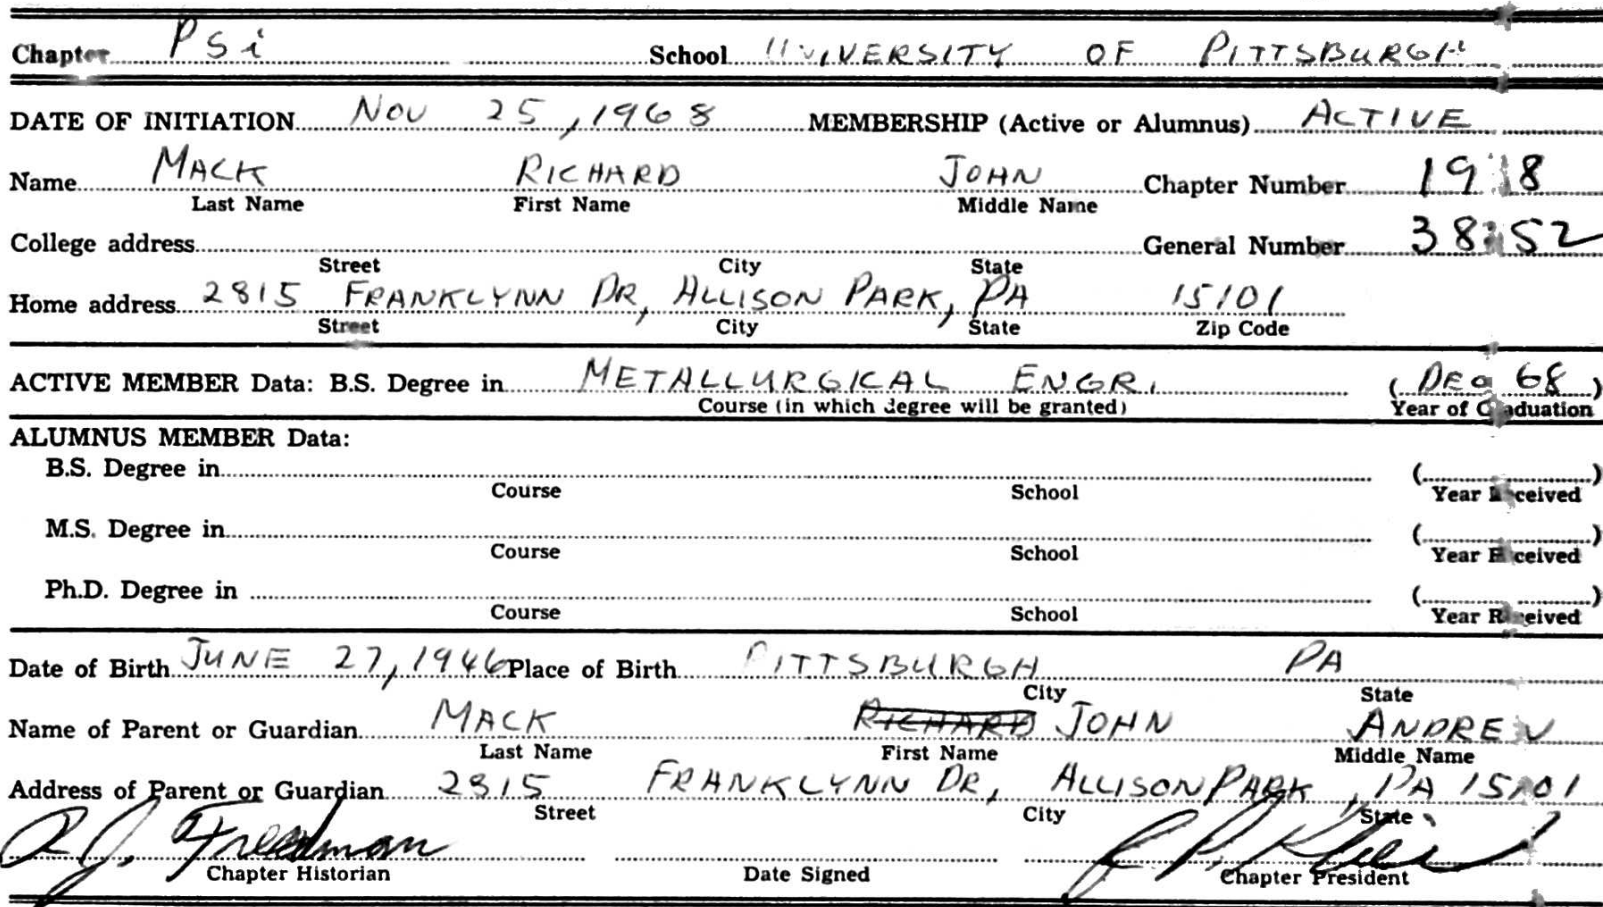 Chapter Psi School UNIVERSITY OF PITTSBURGH
DATE OF INITIATION Nov 25, 1968 MEMBERSHIP (Active or Alumnus) ACTIVE
Name MACK RICHARD JOHN Chapter Number
Last Name First Name Middle Name
College address General Number
Street City State
Home address 2815 FRANKLYNN DR, ALLISON PARK, PA 15101
Street City State Zip Code
ACTIVE MEMBER Data: B.S. Degree in METALLURGICAL ENGR. (DEC 68)
Course (in which degree will be granted) Year of Graduation
ALUMNUS MEMBER Data:
B.S. Degree in ( )
Course School Year Received
M.S. Degree in ( )
Course School Year Received
Ph.D. Degree in ( )
Course School Year Received
Date of Birth JUNE 27, 1946 Place of Birth PITTSBURGH PA
City State
Name of Parent or Guardian MACK RICHARD JOHN ANDREW
Last Name First Name Middle Name
Address of Parent or Guardian 2815 FRANKLYNN DR, ALLISON PARK, PA 15101
Street City State
R J. Freedman
Chapter Historian Date Signed Chapter President